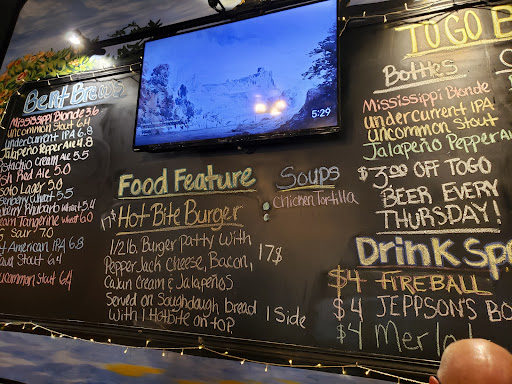 Bent Brews
Mississippi Blonde 5.6
Uncommon Stout 6.4
Undercurrent IPA 6.8
Jalapeño Pepper Ale 4.8
Pistachio Cream Ale 5.5
Red Ale 5.0
Lager 5.0
Wheat 5.5
Rhubarb Wheat 5.4
Tangerine Wheat 6.0
Sour 7.0
American IPA 6.8
Stout 6.4
uncommon Stout 6.4
5:29
Food Feature
Hot Bite Burger
1/2 lb. Burger patty with
PepperJack Cheese, Bacon,
Cajun Cream & Jalapeños
Served on Soughdaugh bread
With 1 HotBite on top
17$
1 Side
Soups
Chicken Tortilla
TO GO
Bottles
Mississippi Blonde
undercurrent IPA
uncommon Stout
Jalapeño Pepper
$3.00 OFF TOGO
BEER EVERY
THURSDAY!
Drink
$4 FIREBALL
$4 JEPPSON'S
$4 Merlot